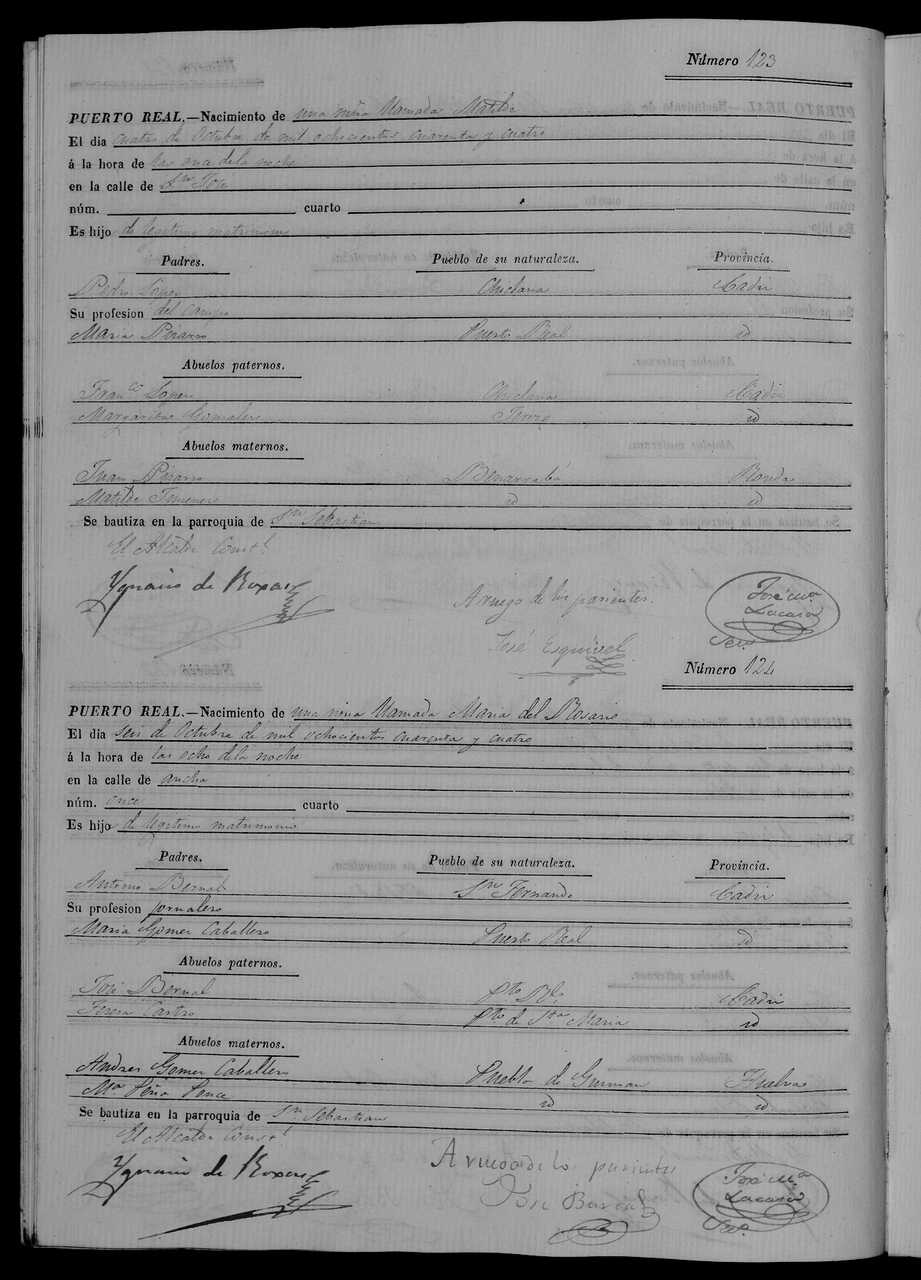 Número 123
PUERTO REAL.—Nacimiento de una niña llamada Matilde
El dia cuatro de Octubre de mil ochocientos cuarenta y cuatro
á la hora de las once de la noche
en la calle de Sn José
núm. cuarto
Es hijo de legitimo matrimonio
Padres. Pueblo de su naturaleza. Provincia.
Pedro Lopez Chiclana Cadiz
Su profesion del campo
Maria Pizarro Puerto Real id
Abuelos paternos.
Franco Lopez Chiclana Cadiz
Margarita Gonzalez id
Abuelos maternos.
Juan Pizarro Benarrabá Ronda
Matilde Jimenez id id
Se bautiza en la parroquia de Sn Sebastian
El Alcalde Constl
Ygnacio de Roxas
A ruego de los parientes.
José Esquivel
José Ma
Lacasa
Seco
Número 124
PUERTO REAL.—Nacimiento de una niña llamada Maria del Rosario
El dia seis de Octubre de mil ochocientos cuarenta y cuatro
á la hora de las ocho de la noche
en la calle de ancha
núm. once cuarto
Es hijo de legitimo matrimonio
Padres. Pueblo de su naturaleza. Provincia.
Antonio Bernal Sn Fernando Cadiz
Su profesion jornalero
Maria Gomez Caballero Puerto Real id
Abuelos paternos.
José Bernal Pto Rl Cadiz
Teresa Castro Pto de Sta Maria id
Abuelos maternos.
Andres Gomez Caballero Puebla de Guzman Huelva
Ma Peña Ponce id id
Se bautiza en la parroquia de Sn Sebastian
El Alcalde Constl
Ygnacio de Roxas
A ruego de lo parientes
José Bernal
José Ma
Lacasa
Seco